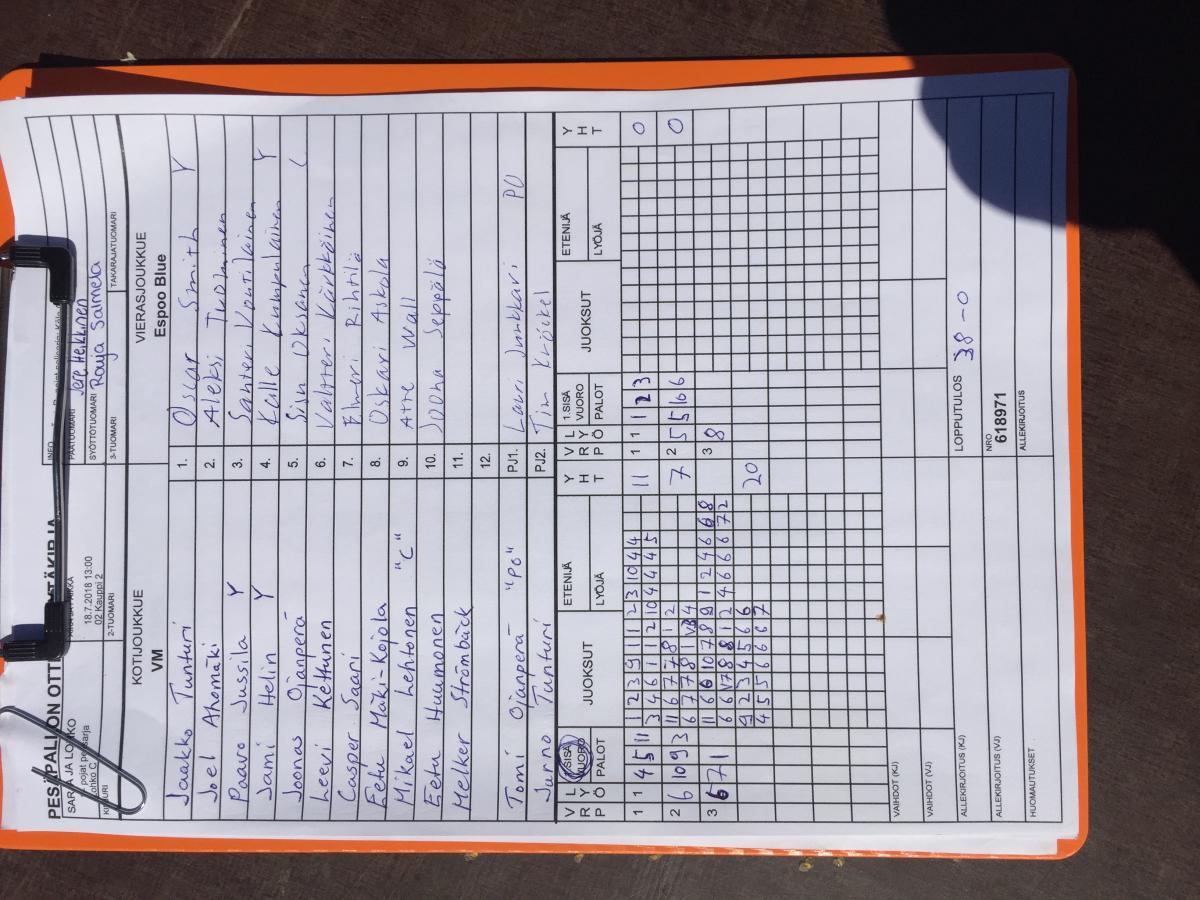 PESÄPALLON OTT
SARJA JA LOHKO
18.7.2018 13:00
02 Kauppi 2
2-TUOMARI
INFO
PÄÄTUOMARI
Jere Heikkinen
SYÖTTÖTUOMARI
Rauja Salmela
3-TUOMARI
TAKARAJATUOMARI
KOTIJOUKKUE
VM
VIERASJOUKKUE
Espoo Blue
Jaakko Tunturi 1. Oscar Smith Y
Joel Ahomäki 2. Aleksi Tuominen
Paavo Jussila Y 3. Santeri Koutilainen
Sami Helin Y 4. Kalle Kumpulainen Y
Joonas Ojanperä 5. Sisu Oksanen C
Leevi Kettunen 6. Valtteri Kärkkäinen
Casper Saari 7. Elmeri Rihtilä
Eetu Mäki-Kojola 8. Oskari Askola
Mikael Lehtonen "C" 9. Atte Wall
Eetu Huumonen 10. Jooha Seppälä
Melker Strömbäck 11.
12.
Tomi Ojanperä "PO" PJ1. Lauri Junkkari PU
Jarno Tunturi PJ2.
VRP LYÖ SISÄ VUORO PALOT JUOKSUT ETENIJÄ LYÖJÄ YHT VRP LYÖ 1.SISÄ VUORO PALOT JUOKSUT ETENIJÄ LYÖJÄ YHT
1 1 4 5 11 1 2 3 9 1 1 2 3 10 4 4 11 1 1 1 2 3 0
3 4 6 1 1 2 10 4 4 4 5
2 6 10 9 3 11 6 7 7 8 1 2 7 2 5 5 16 0
6 7 7 8 1 VB 4
3 6 7 1 11 6 6 10 7 8 9 1 2 4 6 6 8 3 8
6 6 V 7 8 8 1 2 4 6 6 6 7 2
9 2 3 4 5 6 6 20
4 5 5 6 6 6 7
VAIHDOT (KJ)
VAIHDOT (VJ)
ALLEKIRJOITUS (KJ) LOPPUTULOS 38-0
ALLEKIRJOITUS (VJ) NRO
618971
HUOMAUTUKSET ALLEKIRJOITUS